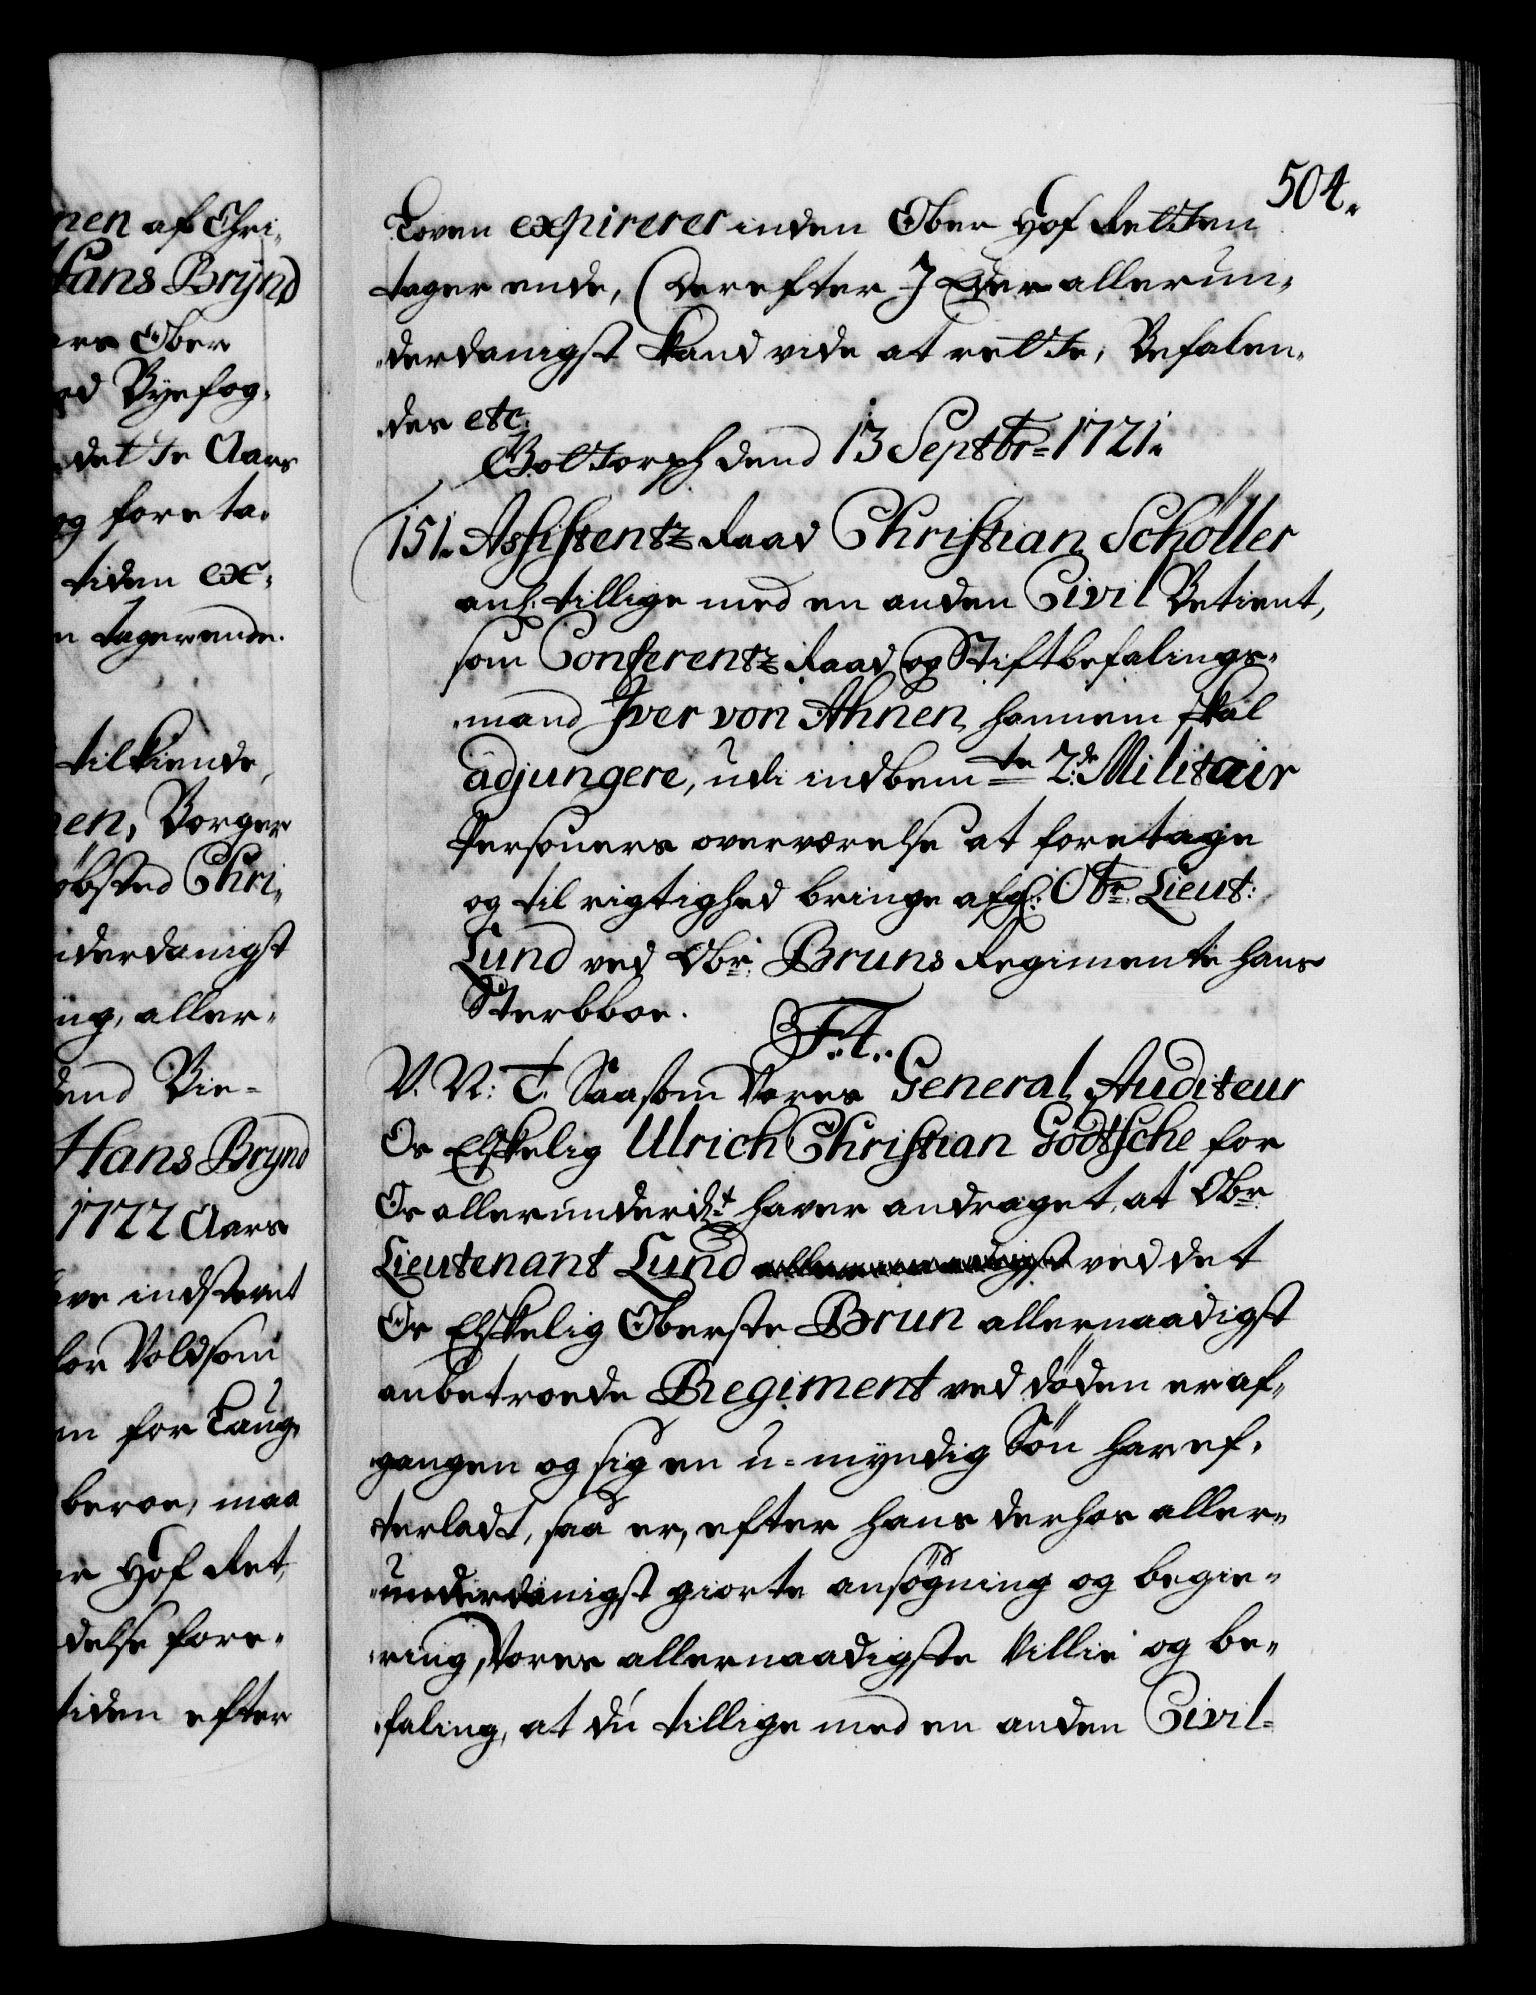 nen af Chri-
Hans Brÿnd
ers Ober
ed Byefog-
dette Aars
og foreta-
tiden ex-
n tager ende.
tilkiende,
en, Borger
øbsted Chri-
iderdanigst
ng, aller-
dend Vie-
Hans Brynd
1722 Aars
ve indstevnt
for Voldsom
en for Laug
beroe, maa
er Hof Ret,
delse fore-
tiden efter
504.
Loven expirerer inden Ober Hof Retten
tager ende, (Derefter I Eder allerun-
derdanigst kand vide at rette, Befalen-
des etc.
Gottorph dend 13 Septbr= 1721.
151. Assistentz Raad Christian Schöller
anl: tillige med en anden Civil Betient,
som Conferentz Raad og Stiftbefalings-
mand Iver von Ahnen hannem skal
adjungere, udi indbem:te 2:de Militair
Persohners overværelse at foretage
og til rigtighed bringe afg: Obr: Lieut:
Lund ved Obr: Bruns Regimente hans
Sterbboe.
F. 4.
V. V: T. Saasom Vores General Auditeur
Os Elskelig Ulrich Christian Godtsche for
Os allerunderd:t haver andraget, at Obr:
Lieutenant Lund ved det
Os Elskelig Oberste Brun allernaadigst
anbetroede Regiment ved döden er af-
gangen og sig en u-myndig Sön har ef-
terladt, saa er, efter hans derhos aller-
underdanigst giorte ansögning og begie-
ring, Vores allernaadigste Villie og be-
faling, at du tillige med en anden Civil-